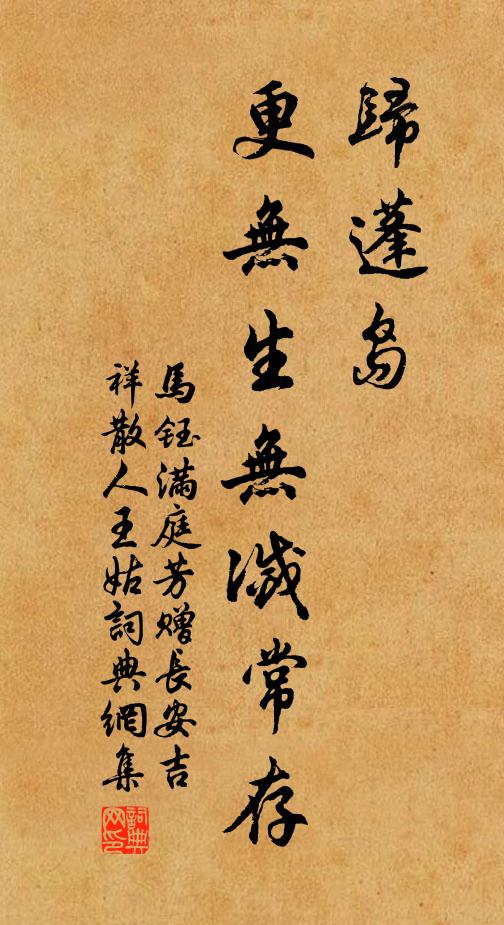 歸蓬島
更無生無滅常存
馬鈺滿庭芳贈長安吉
祥散人王姑詞典網集
詞典网印